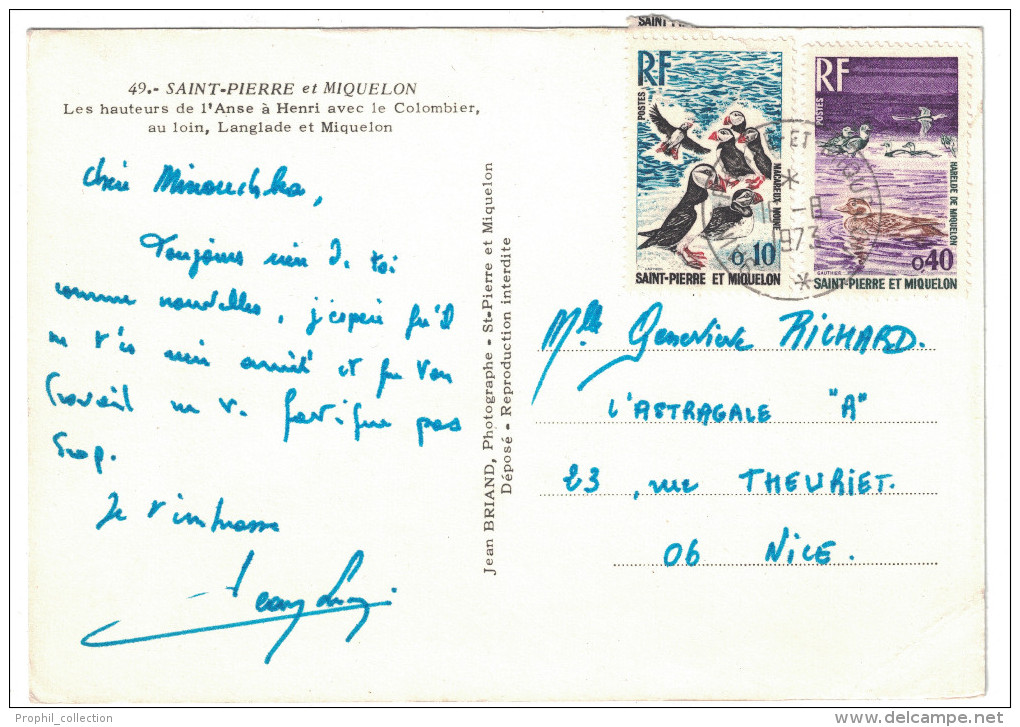 49.- SAINT-PIERRE et MIQUELON
Les hauteurs de l'Anse à Henri avec le Colombier,
au loin, Langlade et Miquelon
Chère Minouchka,
Toujours rien d. toi
comme nouvelles, j'espère qu'il
ne t'es rien arrivé et que ton
travail ne t. fatigue pas
trop.
Je t'embrasse
Jean BRIAND, Photographe - St-Pierre et Miquelon
Déposé - Reproduction interdite
SAINT-PI
RF
POSTES
MACAREUX-MOINE
0,10
SAINT-PIERRE ET MIQUELON
RF
POSTES
HARELDE DE MIQUELON
0,40
GAUTHIER
SAINT-PIERRE ET MIQUELON
1973
Mlle Geneviève RICHARD.
L'ASTRAGALE "A"
23, rue THEURIET.
06 NICE.
Prophil_collection
delcampe.net